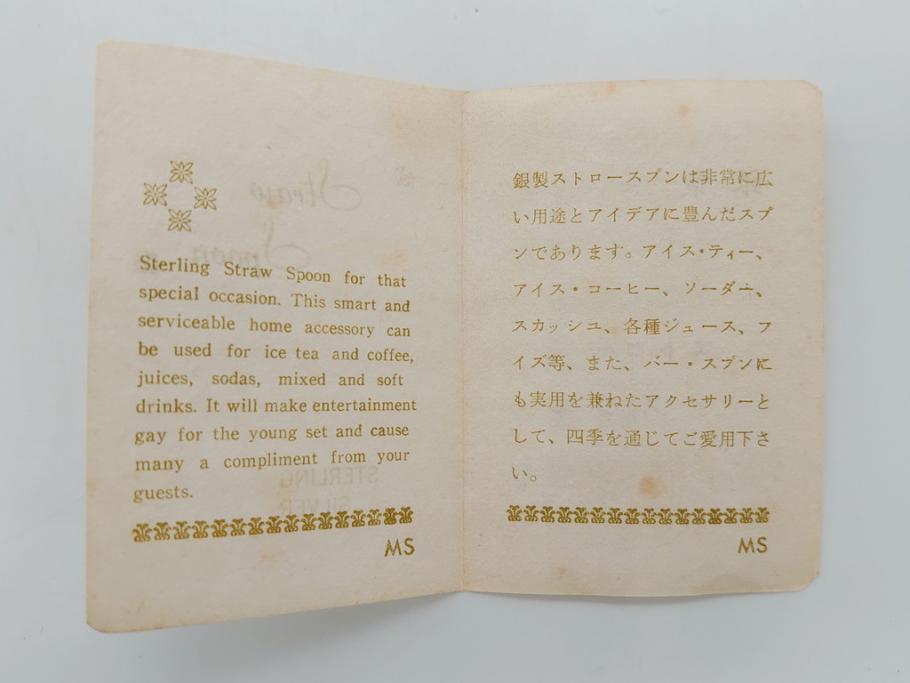 Straw
Spoon
STERLING
SILVER
Sterling Straw Spoon for that
special occasion. This smart and
serviceable home accessory can
be used for ice tea and coffee,
juices, sodas, mixed and soft
drinks. It will make entertainment
gay for the young set and cause
many a compliment from your
guests.
MS
銀製ストロースプンは非常に広
い用途とアイデアに豊んだスプ
ンであります。アイス・ティー、
アイス・コーヒー、ソーダー、
スカッシュ、各種ジュース、フ
イズ等、また、バー・スプンに
も実用を兼ねたアクセサリーと
して、四季を通じてご愛用下さ
い。
MS